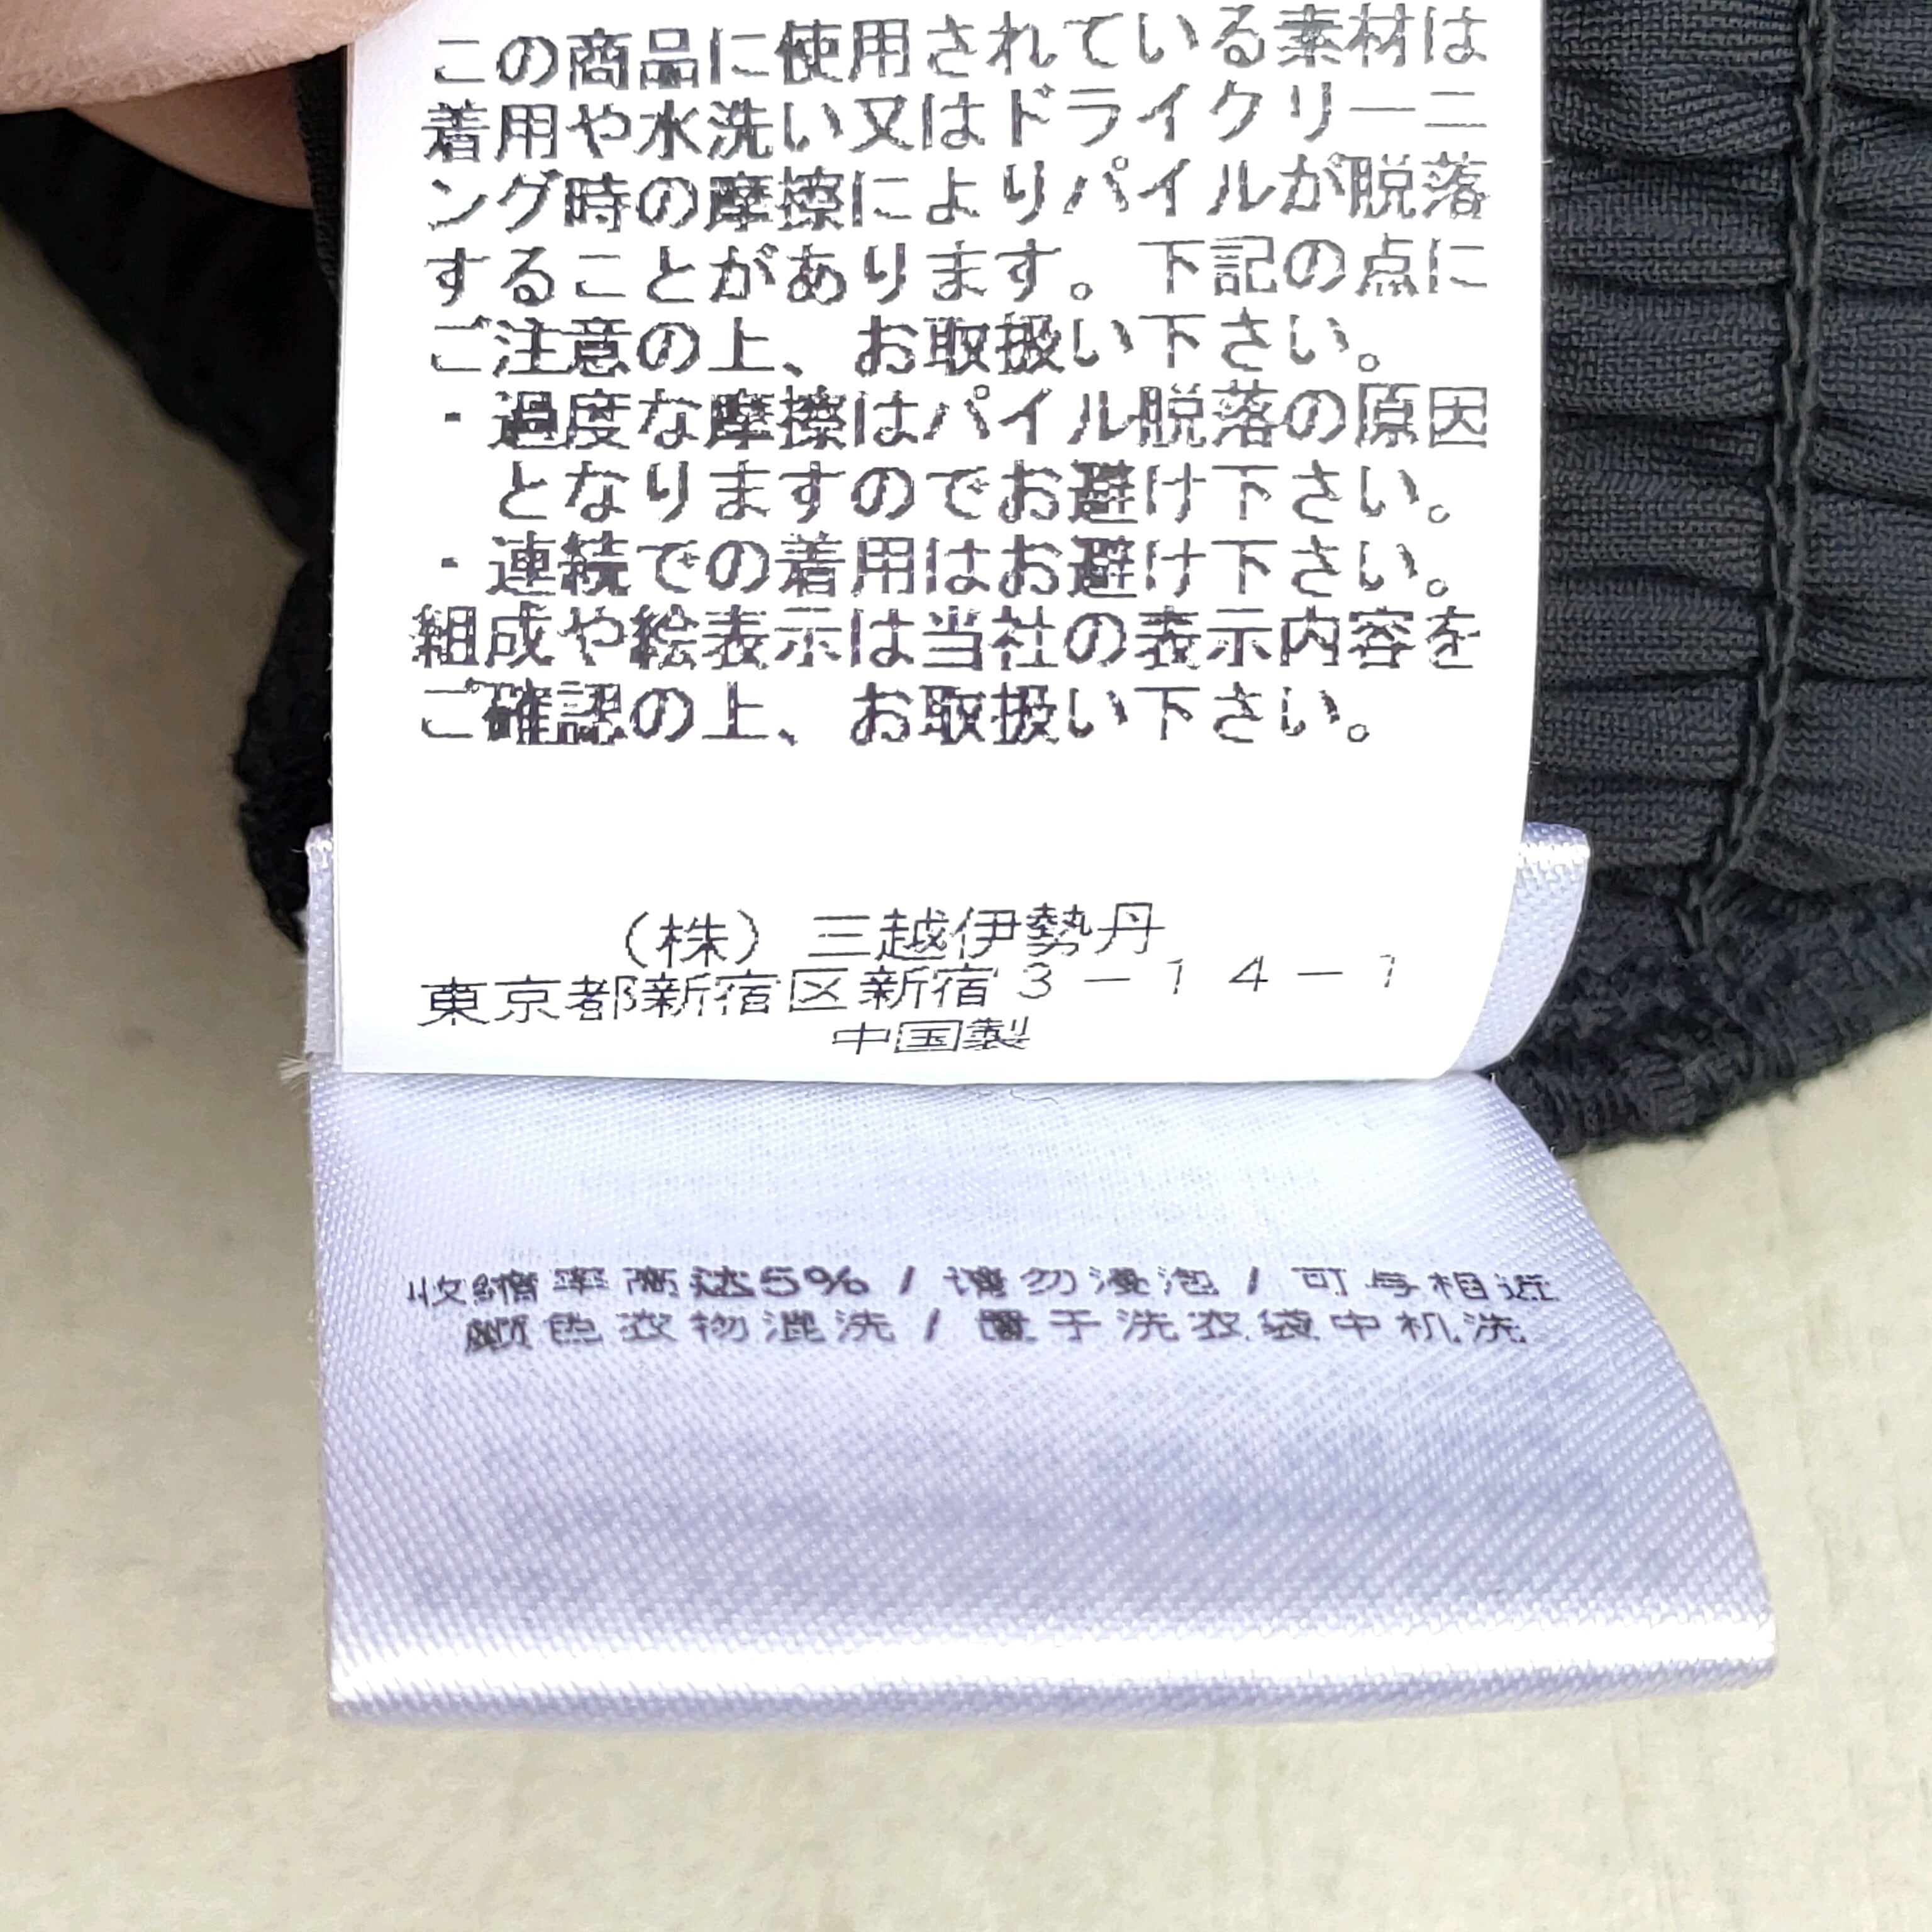 この商品に使用されている素材は
着用や水洗い又はドライクリーニ
ング時の摩擦によりパイルが脱落
することがあります。下記の点に
ご注意の上、お取扱い下さい。
・過度な摩擦はパイル脱落の原因
となりますのでお避け下さい。
・連続での着用はお避け下さい。
組成や絵表示は当社の表示内容を
ご確認の上、お取扱い下さい。
（株）三越伊勢丹
東京都新宿区新宿３－１４－１
中国製
收缩率高达5% / 请勿浸泡 / 可与相近
颜色衣物混洗 / 置于洗衣袋中机洗